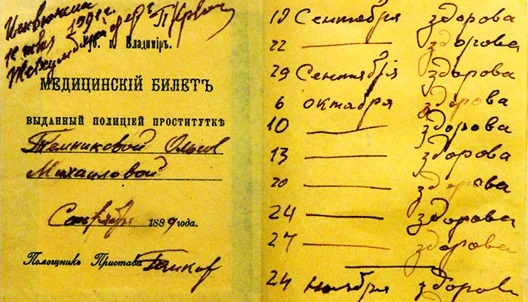 Губ. г. Владиміръ.
МЕДИЦИНСКІЙ БИЛЕТЪ
ВЫДАННЫЙ ПОЛИЦІЕЙ ПРОСТИТУТКѢ
Темниковой Ольгѣ
Михаиловой
Сентября 1889 года.
Помощникъ Пристава
19 Сентября здорова
22 — здорова
29 Сентября здорова
6 октября здорова
10 — здорова
13 — здорова
20 — здорова
24 — здорова
27 — здорова
24 ноября здорова